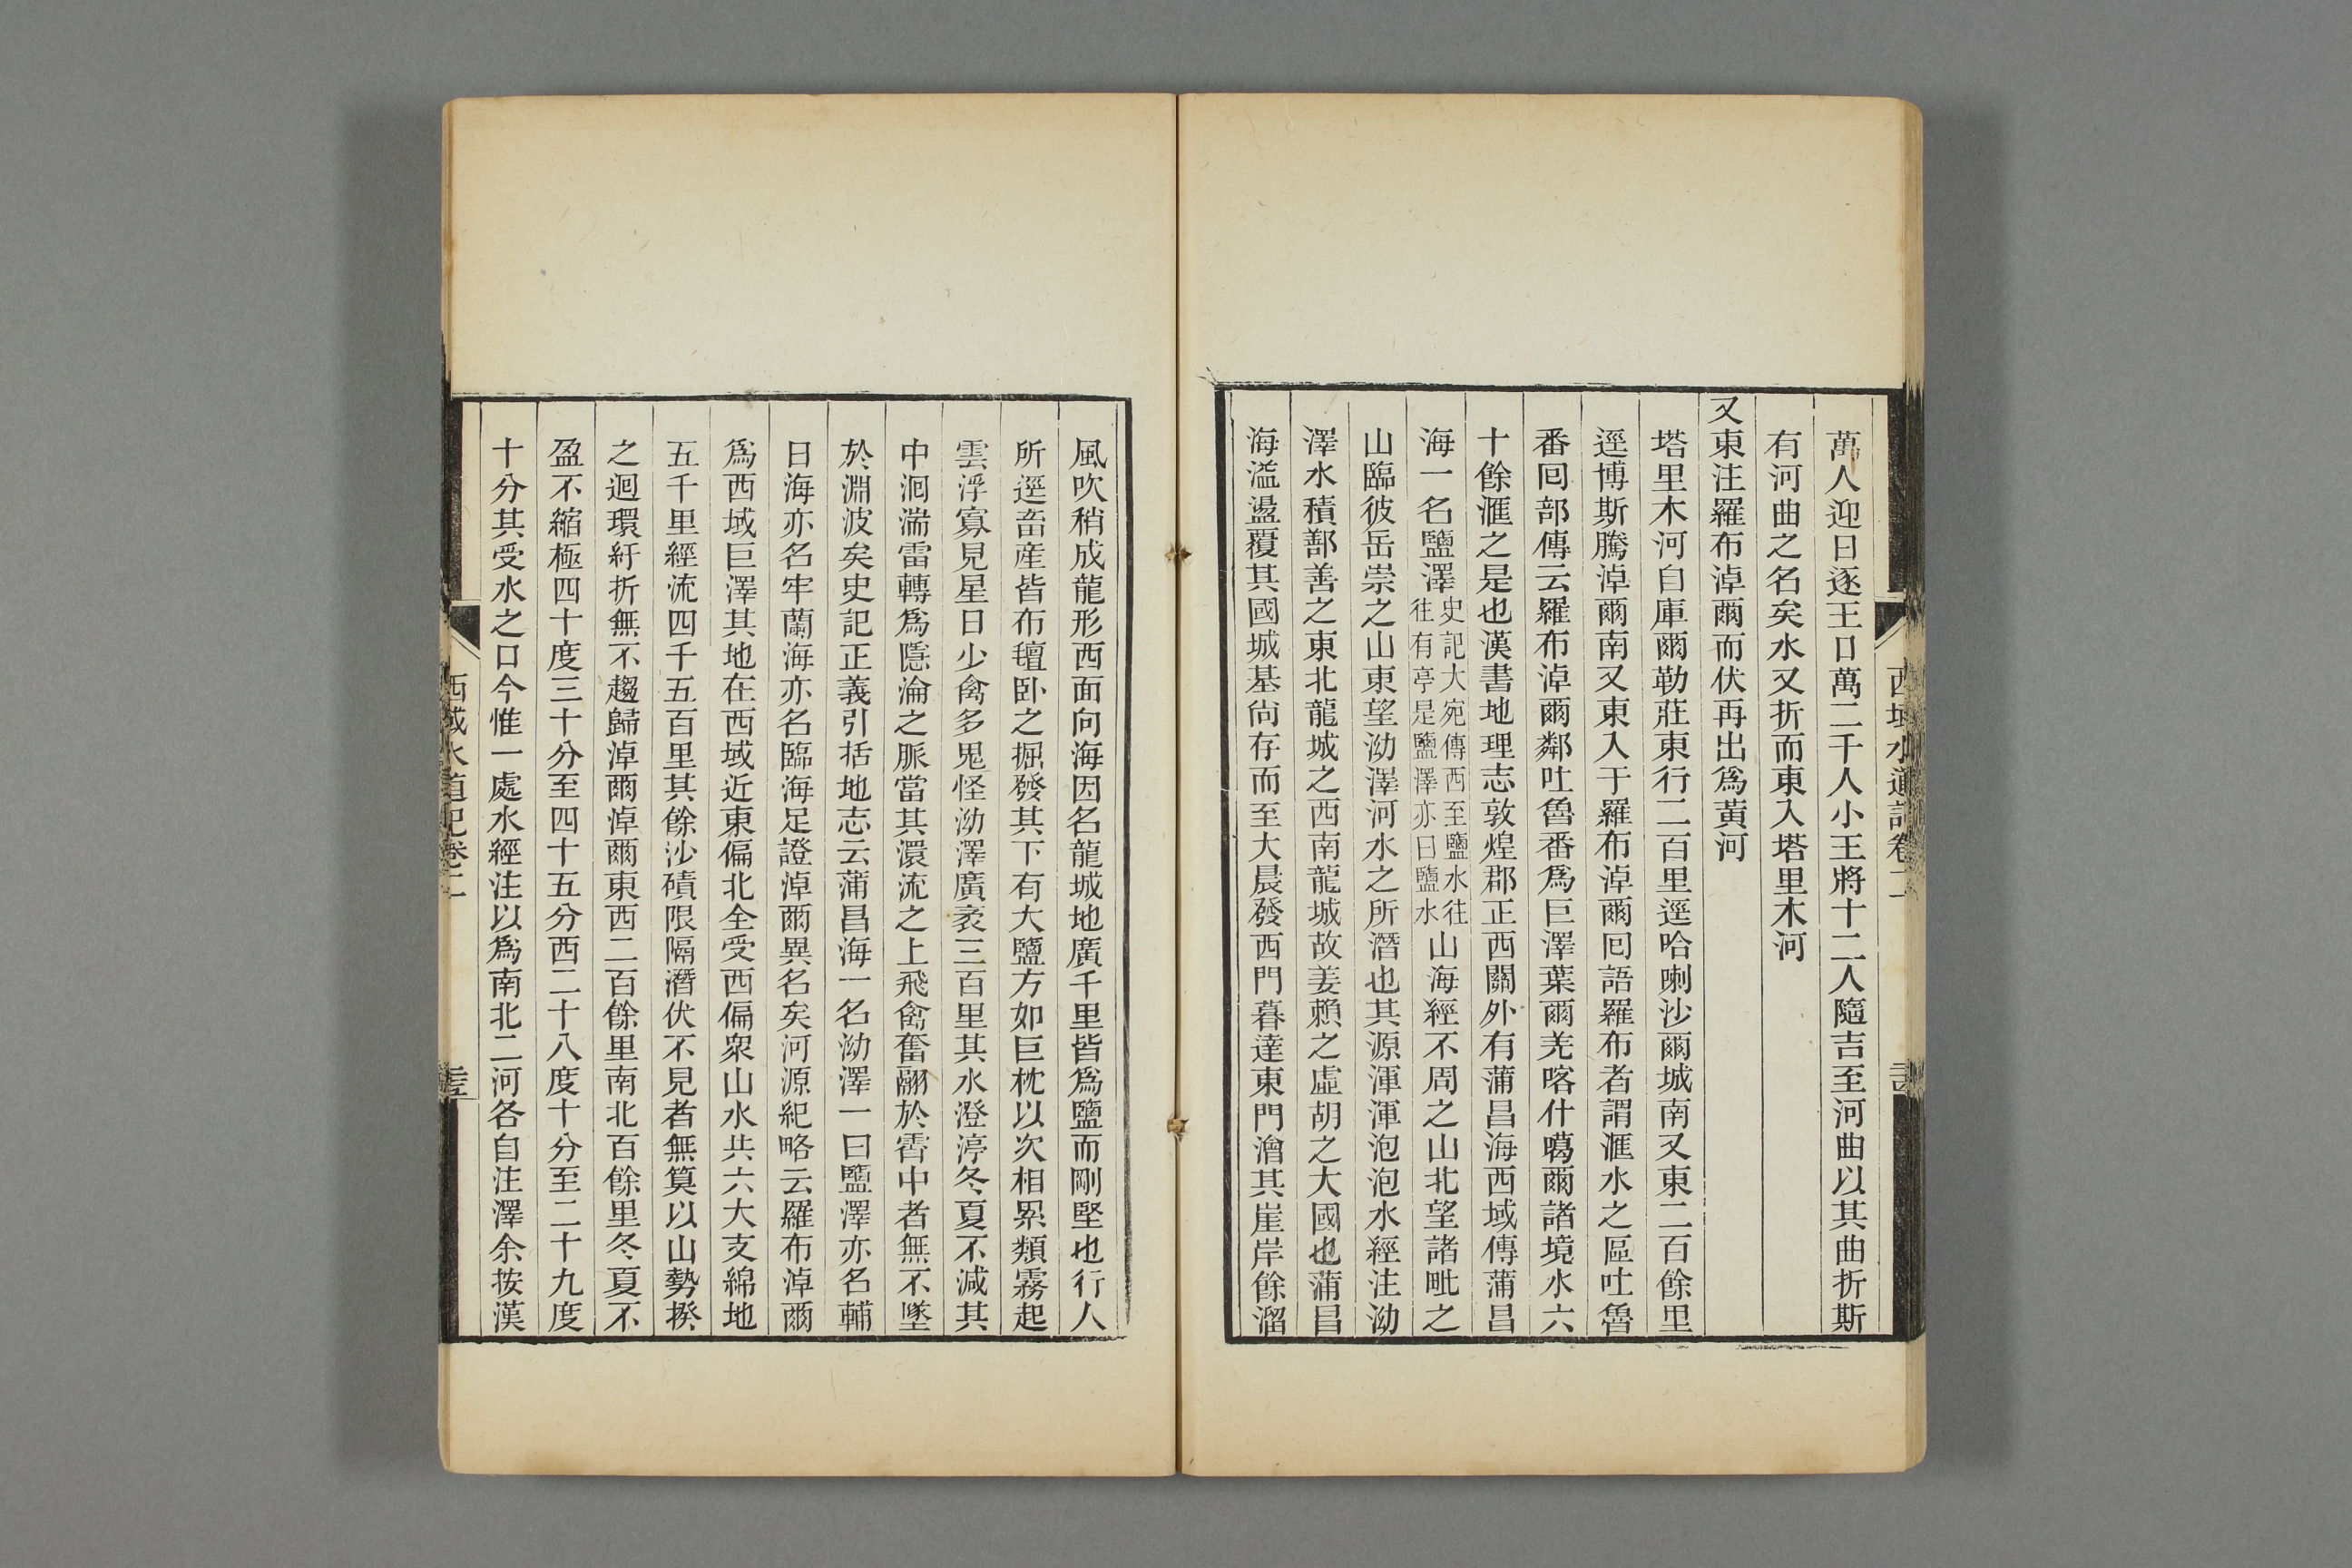 萬人迎日逐王口萬二千人小王將十二人隨吉至河曲以其曲折斯
有河曲之名矣水又折而東入塔里木河
又東注羅布淖爾而伏再出爲黃河
塔里木河自庫爾勒莊東行二百里逕哈喇沙爾城南又東二百餘里
逕博斯騰淖爾南又東入于羅布淖爾囘語羅布者謂滙水之區吐魯
番囘部傳云羅布淖爾鄰吐魯番爲巨澤葉爾羌喀什噶爾諸境水六
十餘滙之是也漢書地理志敦煌郡正西關外有蒲昌海西域傳蒲昌
海一名鹽澤史記大宛傳西至鹽水往往有亭是鹽澤亦曰鹽水山海經不周之山北望諸毗之
山臨彼岳崇之山東望泑澤河水之所潛也其源渾渾泡泡水經注泑
澤水積鄯善之東北龍城之西南龍城故姜賴之虛胡之大國也蒲昌
海溢盪覆其國城基尙存而至大晨發西門暮達東門澮其崖岸餘溜
西域水道記卷二
風吹稍成龍形西面向海因名龍城地廣千里皆爲鹽而剛堅也行人
所逕畜產皆布氊卧之掘發其下有大鹽方如巨枕以次相累類霧起
雲浮寡見星日少禽多鬼怪泑澤廣袤三百里其水澄渟冬夏不減其
中洄湍雷轉爲隱淪之脈當其澴流之上飛禽奮翮於霄中者無不墜
於淵波矣史記正義引括地志云蒲昌海一名泑澤一曰鹽澤亦名輔
日海亦名牢蘭海亦名臨海足證淖爾異名矣河源紀略云羅布淖爾
爲西域巨澤其地在西域近東偏北全受西偏衆山水共六大支綿地
五千里經流四千五百里其餘沙磧限隔潛伏不見者無算以山勢揆
之迴環紆折無不趨歸淖爾淖爾東西二百餘里南北百餘里冬夏不
盈不縮極四十度三十分至四十五分西二十八度十分至二十九度
十分其受水之口今惟一處水經注以爲南北二河各自注澤余按漢
西域水道記卷二